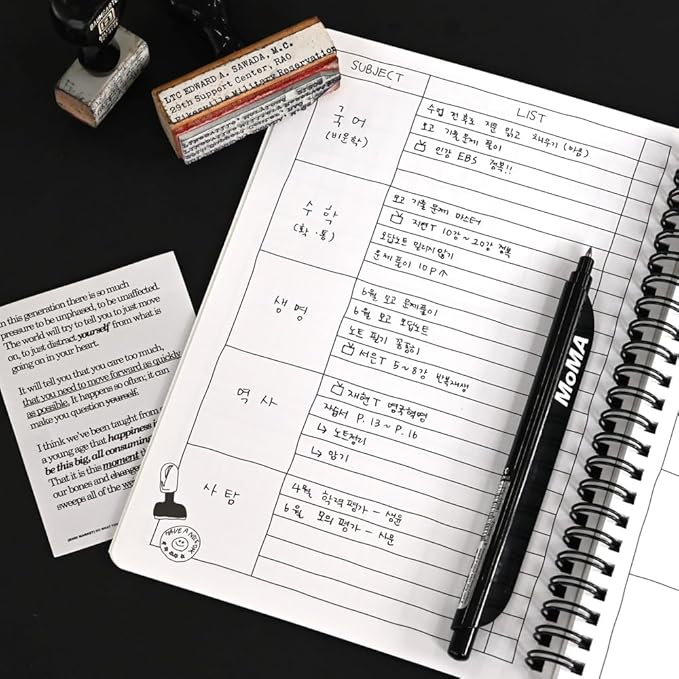 LTC EDWARD A. SAWADA, M.C.
29th Support Center, RAO
Pikesville Military Reservation
SUBJECT
LIST
국어
(비문학)
수업 전 목표 지문 읽고 채우기 (마음)
모고 기출문제 풀이
인강 EBS 정복!!
수학
(확·통)
모고 기출문제 마스터
지현T 10강~20강 정복
오답노트 밀리지 않기
문제풀이 10P↑
생명
6월 모고 문제풀이
6월 모고 오답노트
노트 필기 꼼꼼히
서은T 5~8강 반복재생
역사
재현T 명곡혁명
자습서 P.13~P.16
↳ 노트정리
↳ 암기
사탐
4월 학력평가 - 생윤
6월 모의평가 - 사문
HAVE A NICE DAY
MoMA
in this generation there is so much
pressure to be unphased, to be unaffected.
The world will try to tell you to just move
on, to just distract yourself from what is
going on in your heart.
It will tell you that you care too much,
that you need to move forward as quickly
as possible. It happens so often; it can
make you question yourself.
I think we've been taught from
a young age that happiness
be this big, all consuming
That it is this moment
our bones and changes
sweeps all of the